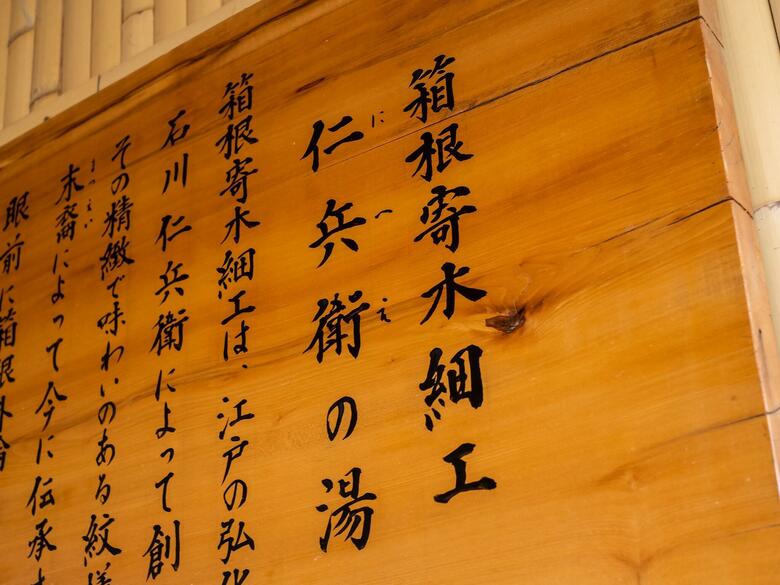 箱根寄木細工
仁兵衛の湯
にへえ
箱根寄木細工は、江戸の弘化
石川仁兵衛によって創
その精緻で味わいのある紋様
末裔によって今に伝承
まつえい
眼前に箱根外輪